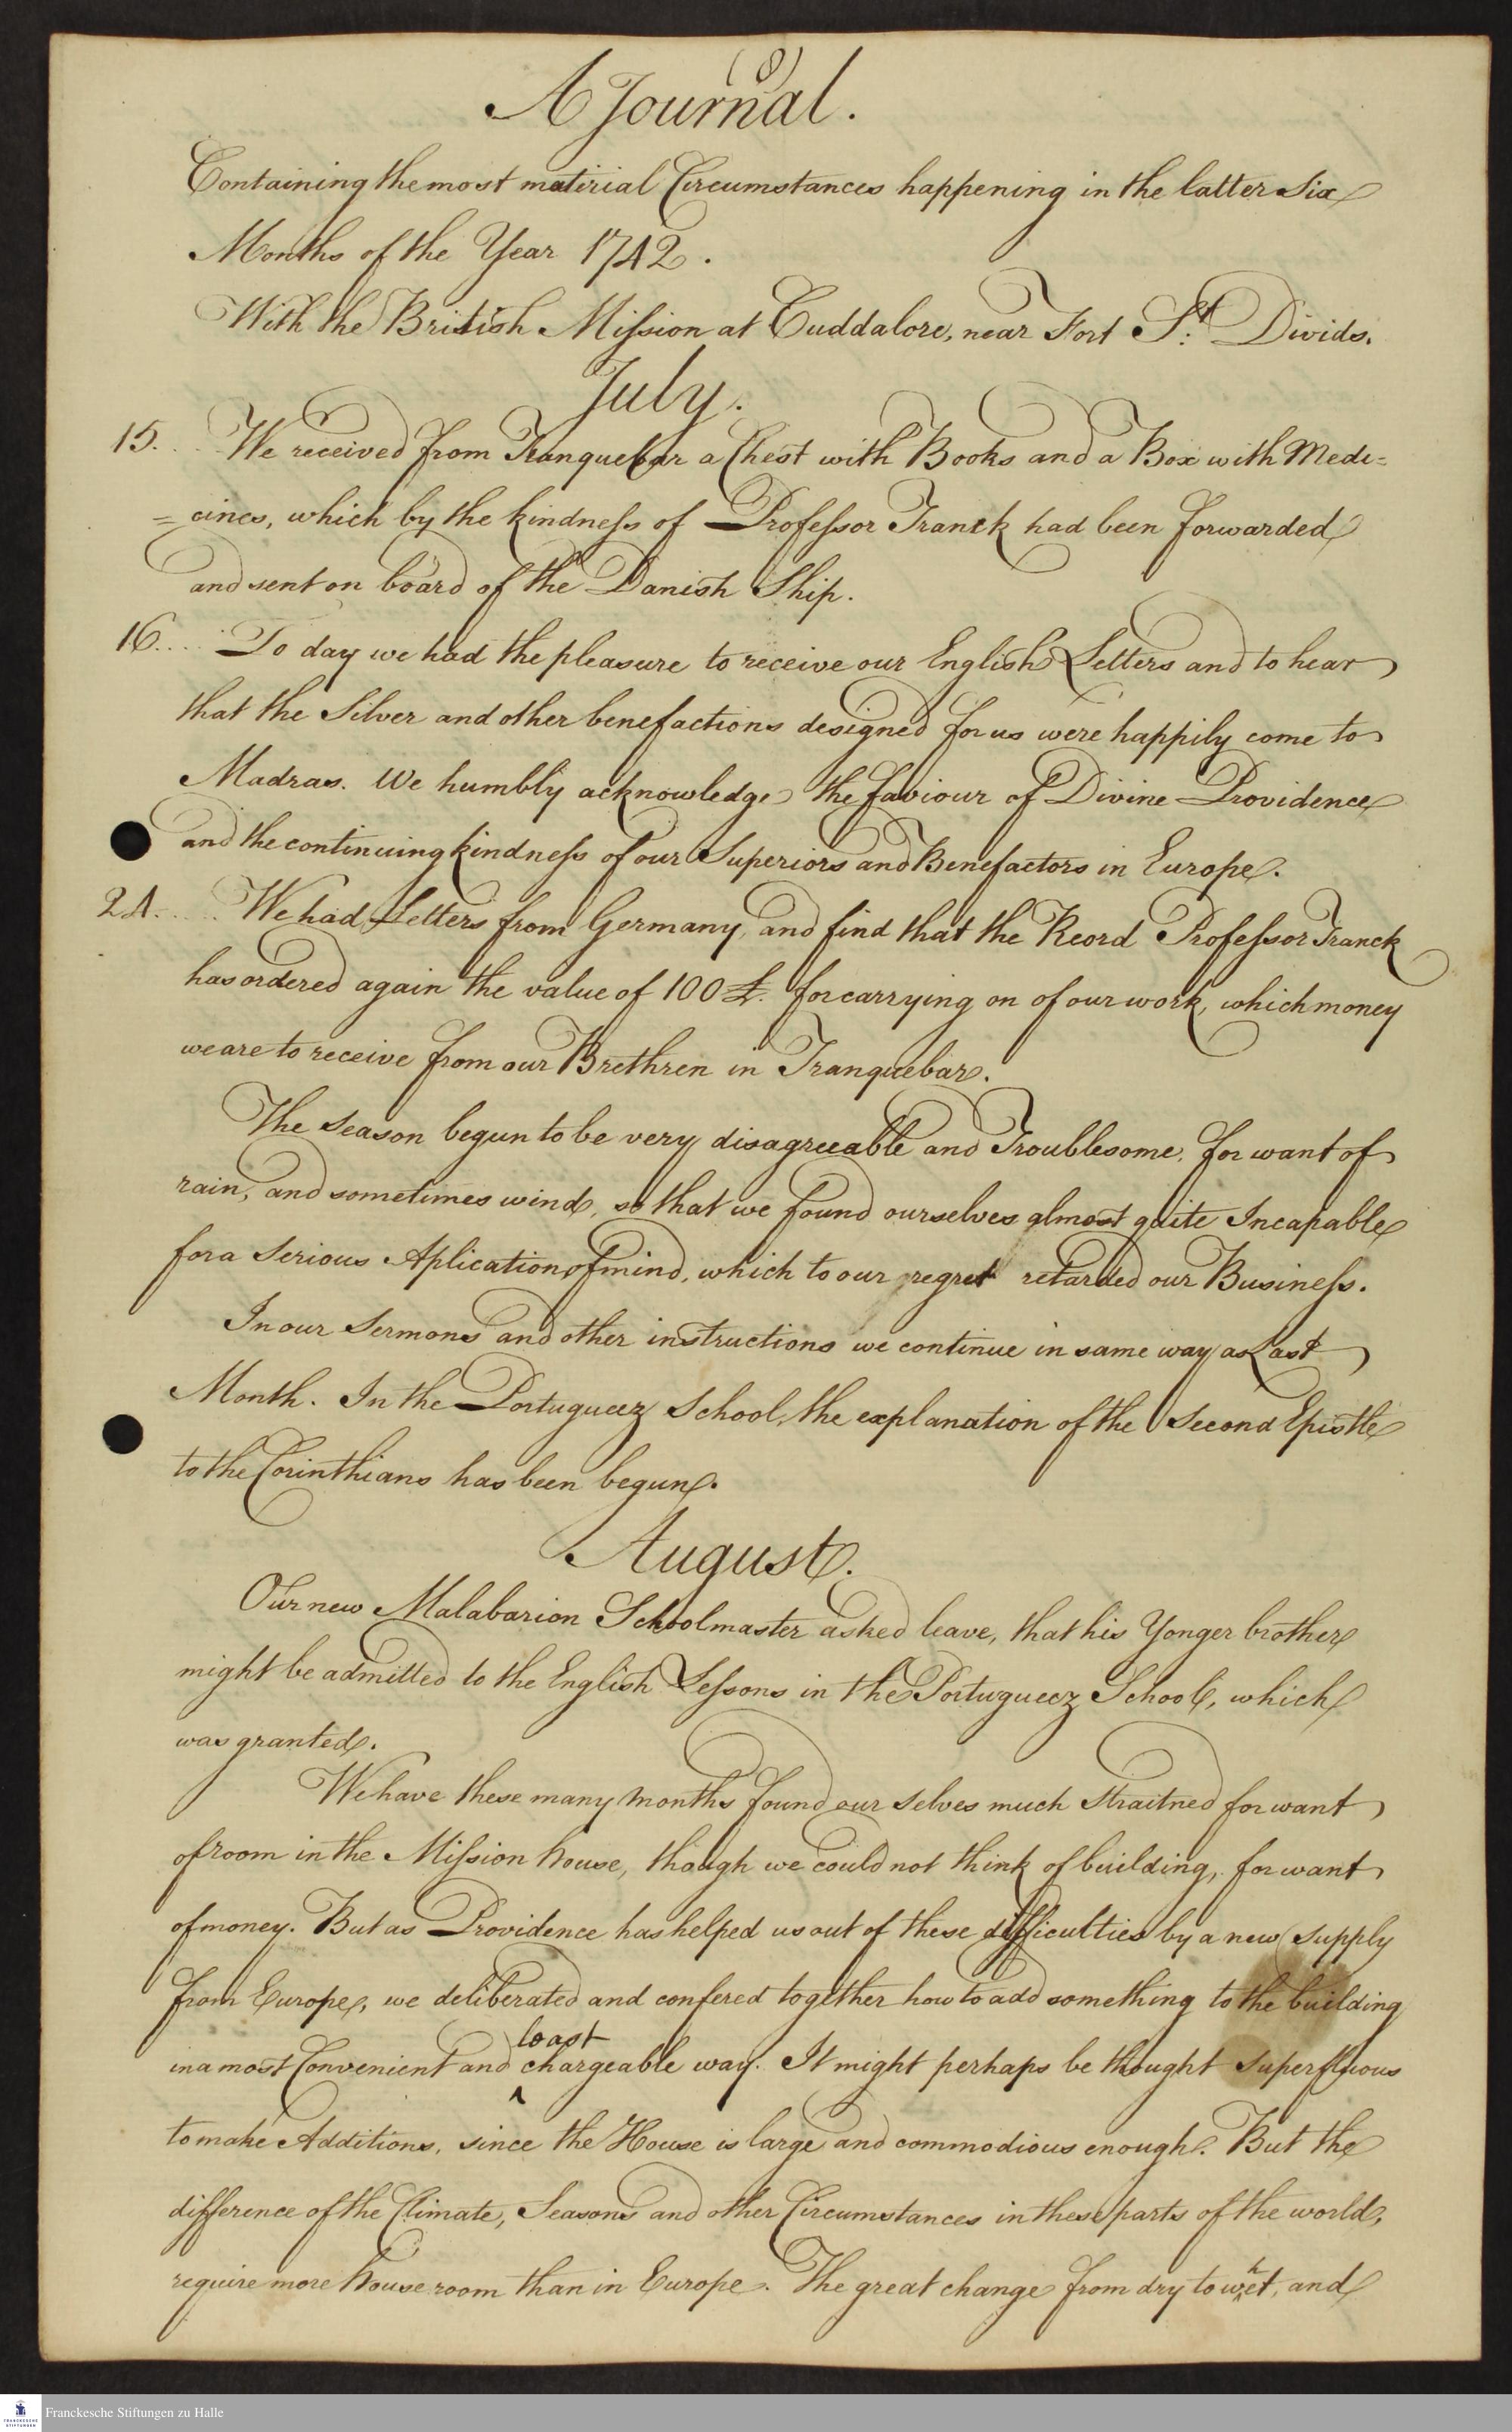 (8)
A Journal.
Containing the most matirial Circumstances happening in the latter Six
Months of the Year 1742.
With the British Mission at Cuddalore, near Fort St: Divids.
July.
15... We received from Tranquebar a Chest with Books and a Box with Medi=
=cines, which by the kindness of Professor Franck had been forwarded
and sent on board of the Danish Ship.
16.... To day we had the pleasure to receive our English Letters and to hear
that the Silver and other benefactions designed for us were happily come to
Madras. We humbly acknowledge the faviour of Divine Providence
and the continuing kindness of our Superiors and Benefactors in Europe.
24..... We had Letters from Germany, and find that the Reord Professor Franck
has ordered again the value of 100 £. for carrying on of our work, which money
we are to receive from our Brethren in Tranquebar.
The Season begun to be very disagreeable and Troublesome, for want of
rain, and sometimes wind, so that we found ourselves almost quite Incapable
for a Serious Aplication of mind, which to our regret retarded our Business.
In our Sermons and other instructions we continue in same way as Last
Month. In the Portugueez School, the explanation of the Second Epistle
to the Corinthians has been begun.
August.
Our new Malabarion Schoolmaster asked leave, that his Yonger brother
might be admitted to the English Lessons in the Portugueez School, which
was granted.
We have these many months found our selves much Straitned for want
of room in the Mission house, though we could not think of building, for want
of money. But as Providence has helped us out of these difficulties by a new supply
from Europe, we deliberated and confered together how to add something to the building
in a most Convenient and least chargeable way. It might perhaps be thought superfluous
to make Additions, since the House is large and commodious enough. But the
difference of the Climate, Seasons and other Circumstances in these parts of the world,
require more house room than in Europe. The great change from dry to whet, and
Franckesche Stiftungen zu Halle
FRANCKESCHE
STIFTUNGEN